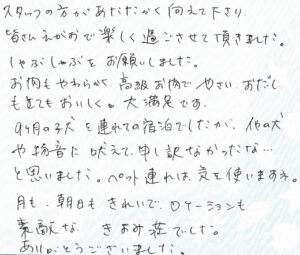 スタッフの方があたたかく向えて下さり、
皆さんえがおで楽しく過ごさせて頂きました。
しゃぶしゃぶをお願いしました。
お肉もやわらかく、高級お肉でやさい、おだし
もとてもおいしく。大満足です。
9ヶ月の子犬を連れての宿泊でしたが、他の犬
や物音に吠えて、申し訳なかったな…
と思いました。ペット連れは、気を使いますネ。
月も、朝日もきれいで、ロケーションも
素敵な、きよみ荘でした。
ありがとうございました。